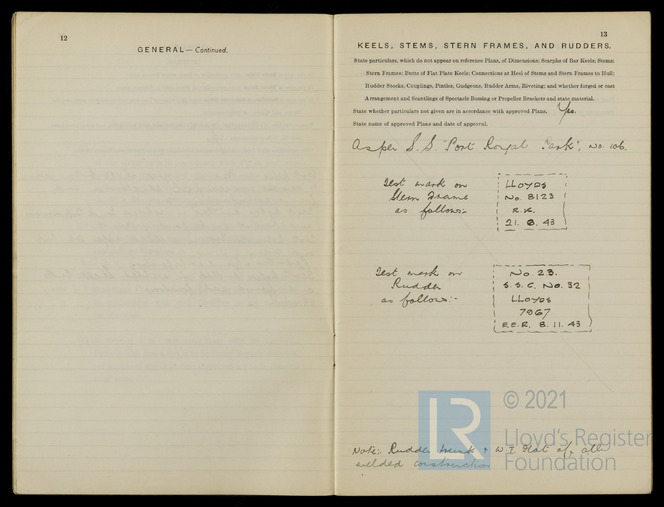 12
GENERAL—Continued.
13
KEELS, STEMS, STERN FRAMES, AND RUDDERS.
State particulars, which do not appear on reference Plans, of Dimensions: Scarphs of Bar Keels; Stems;
Stern Frames; Butts of Flat Plate Keels; Connections at Heel of Stems and Stern Frames to Hull;
Rudder Stocks, Couplings, Pintles, Gudgeons, Rudder Arms, Riveting; and whether forged or cast
Arrangement and Scantlings of Spectacle Bossing or Propeller Brackets and state material.
State whether particulars not given are in accordance with approved Plans. Yes.
State name of approved Plans and date of approval.
As per S.S. "Port Royal Park", No. 106.
Test mark on
Stern Frame
as follows:-
LLOYDS
No. 8123
R.K.
21. 8. 43
Test mark on
Rudder
as follows:-
No. 23.
S.S.C. No. 32
LLOYDS
7967
E.E.R. 8.11.43
Note: Rudder trunk & W.T. flat of, all
welded construction
LR
© 2021
Lloyd's Register
Foundation